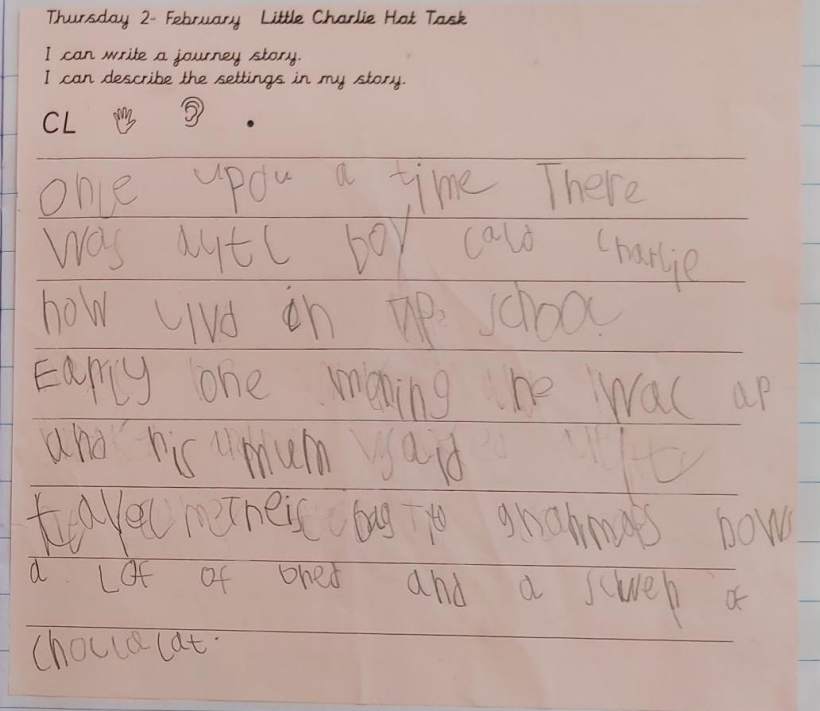 Thursday 2- February Little Charlie Hot Task
I can write a journey story.
I can describe the settings in my story.
CL
Once upou a time There
was boy cald Charlie
how livd in school
Early one morning he wac ap
and his mum said
bag to granmas
a Lof of and a of
choccalat.